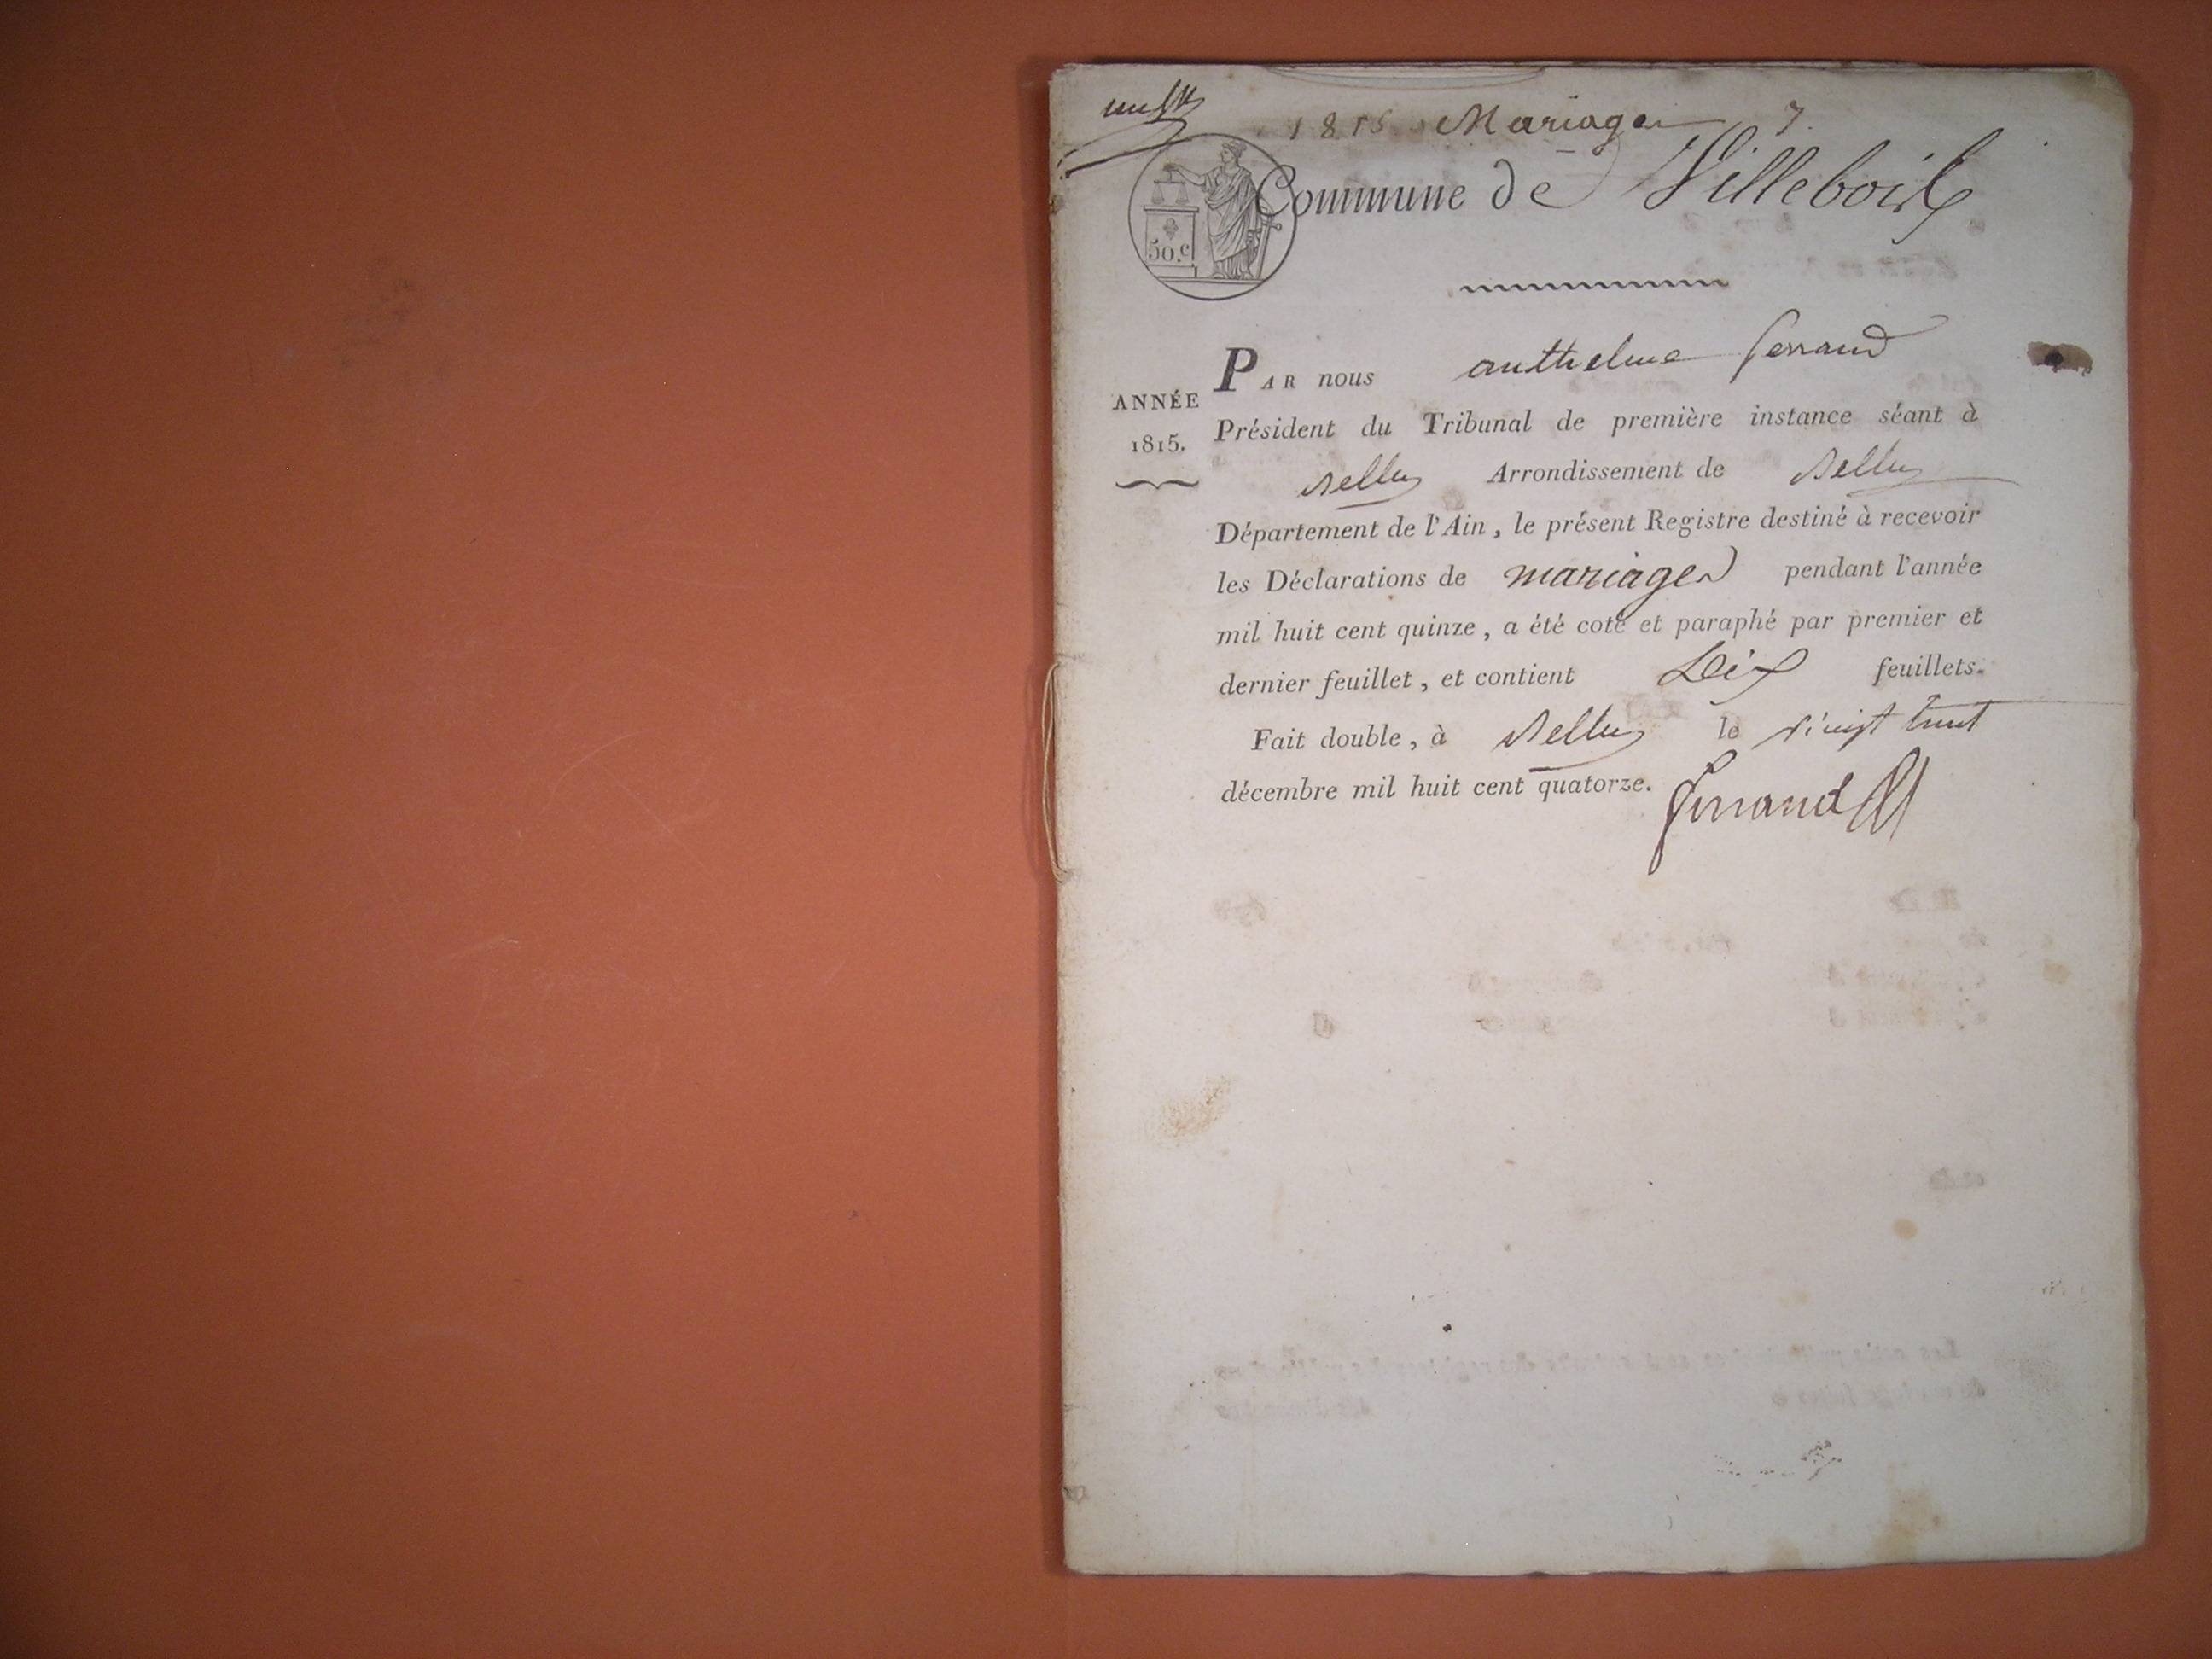 1815 Mariages 7.
Commune de Villebois
50.c
PAR nous anthelme ferrand
ANNÉE
1815.
Président du Tribunal de première instance séant à
Belley Arrondissement de Belley
Département de l'Ain, le présent Registre destiné à recevoir
les Déclarations de mariages pendant l'année
mil huit cent quinze, a été coté et paraphé par premier et
dernier feuillet, et contient Dix feuillets.
Fait double, à Belley le vingt huit
décembre mil huit cent quatorze.
ferrand